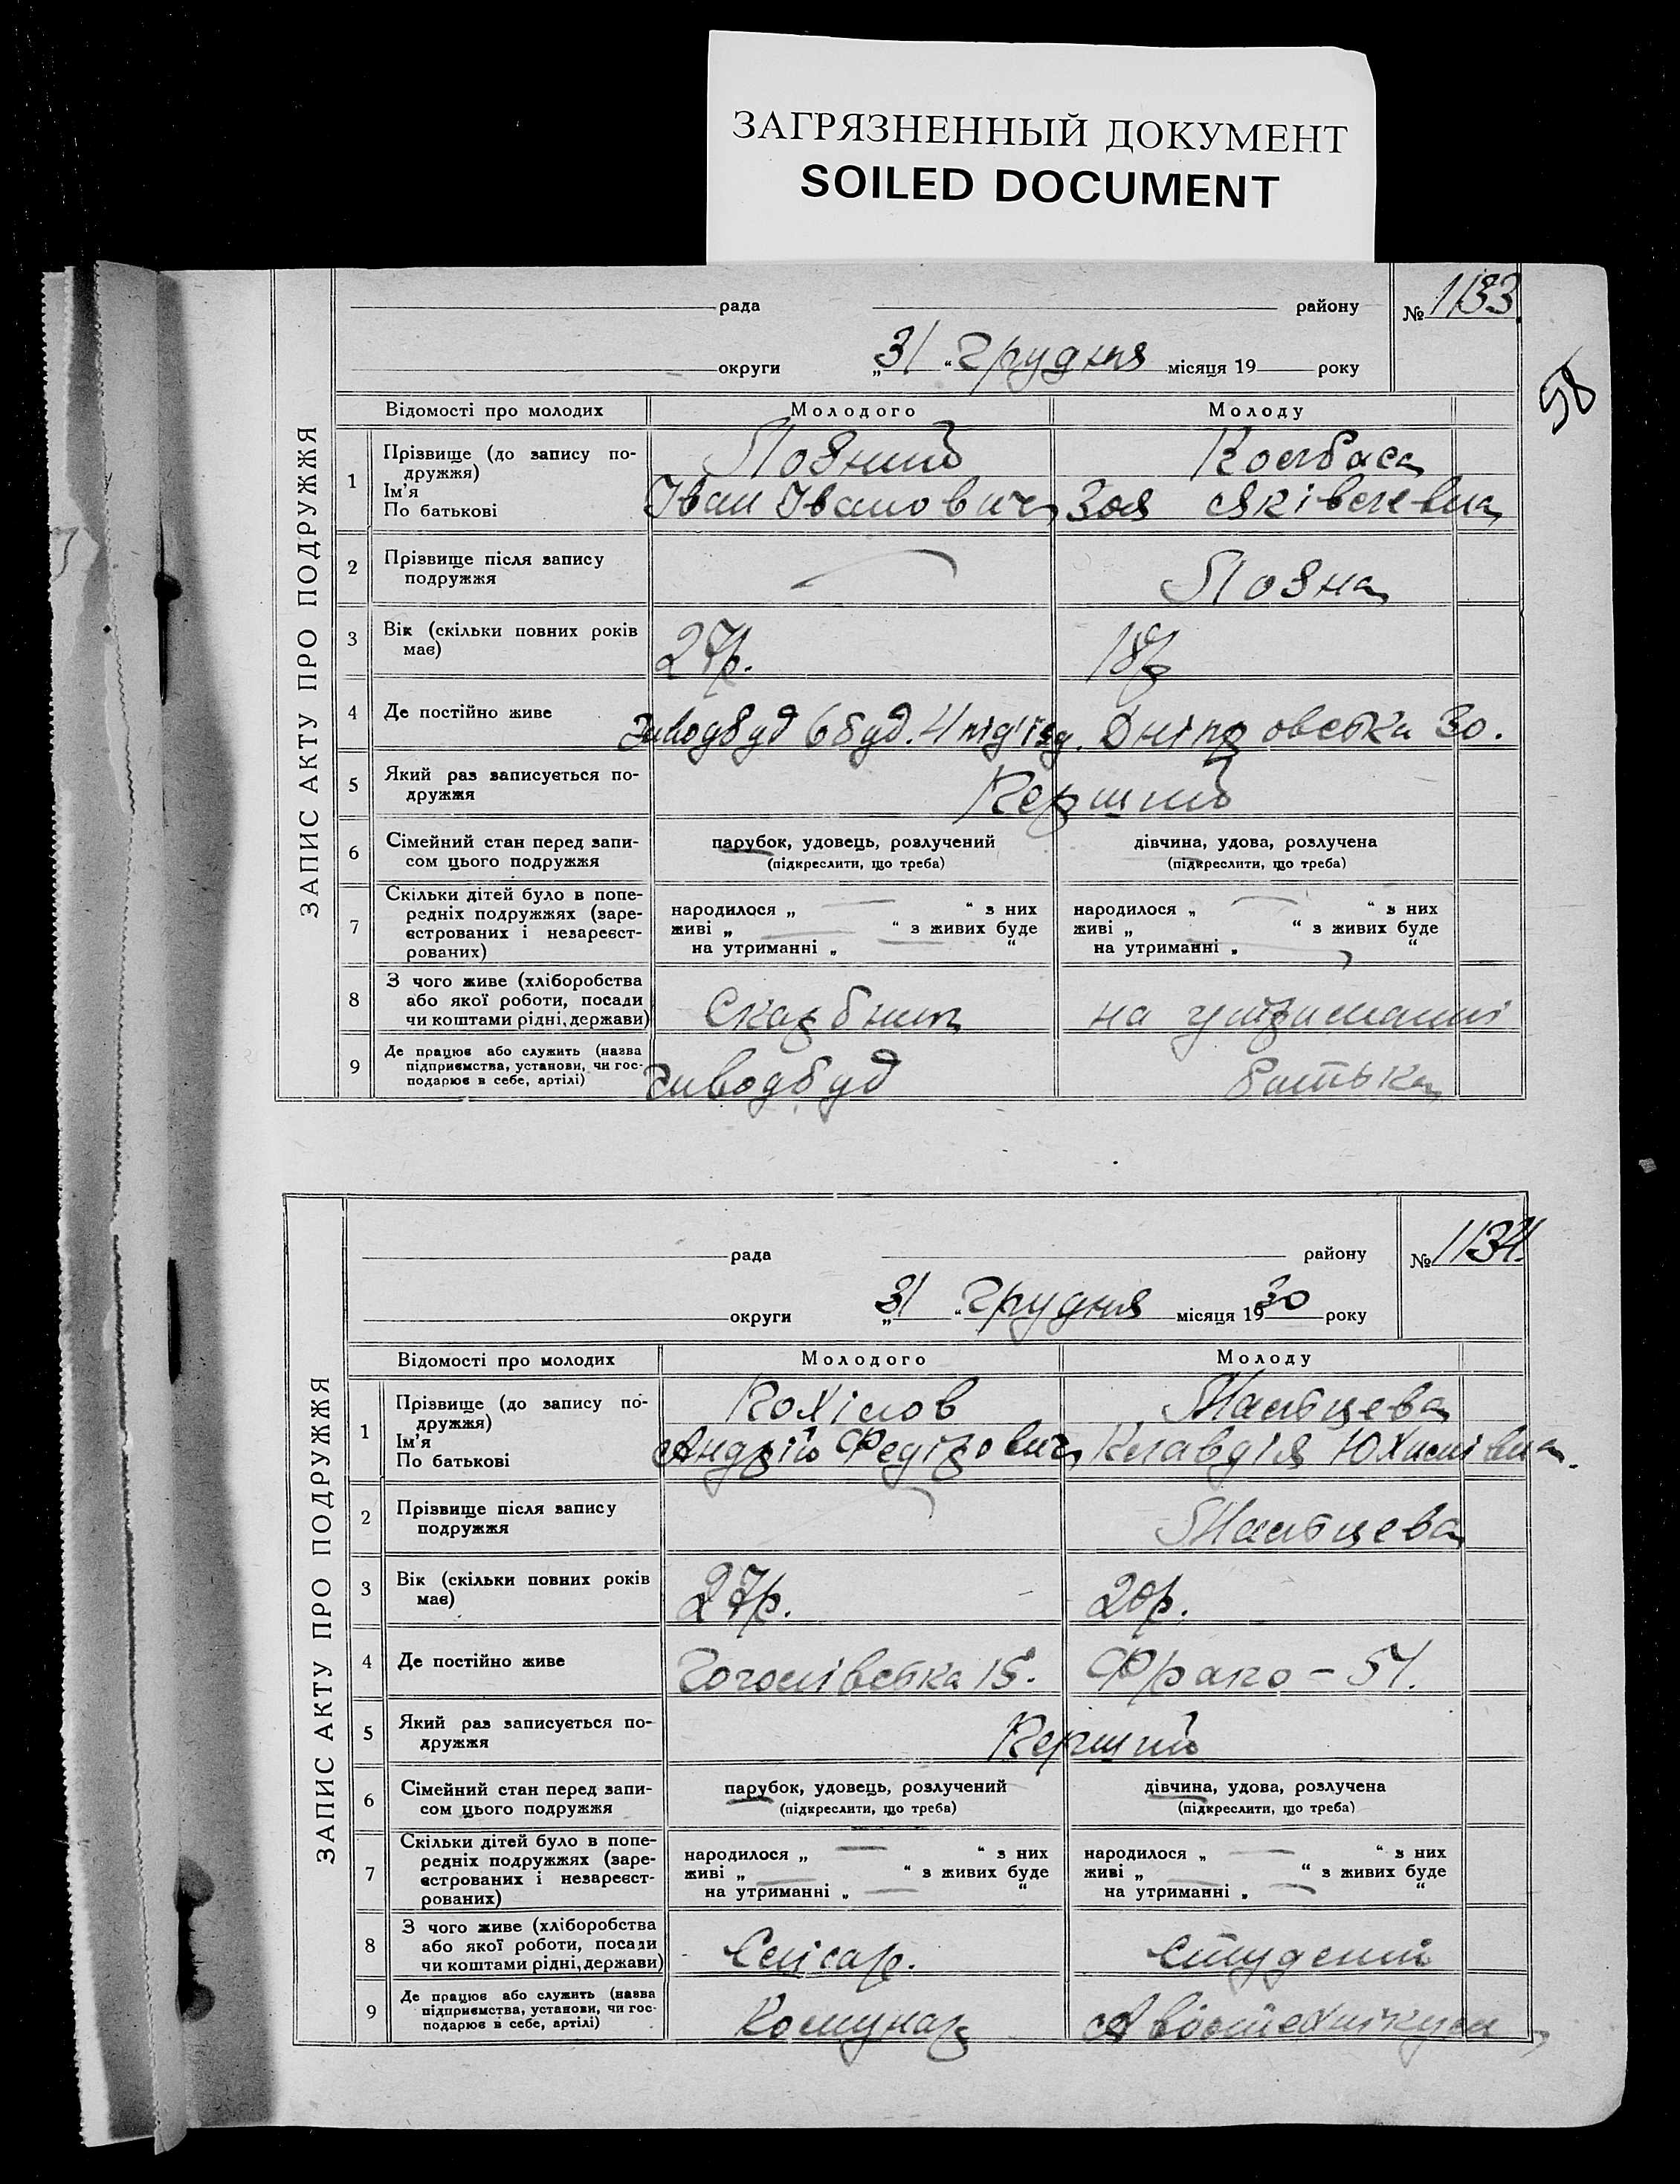 ЗАГРЯЗНЕННЫЙ ДОКУМЕНТ
SOILED DOCUMENT
рада району № 1133.
округи „31 “ Грудня місяця 19 року
58
ЗАПИС АКТУ ПРО ПОДРУЖЖЯ
Відомості про молодих Молодого Молоду
1 Прізвище (до запису по-
дружжя)
Ім'я
По батькові
Ковбаса
Іван Іванович Зоя Яківлевна
2 Прізвище після запису
подружжя
3 Вік (скільки повних років
має)
27р. 18р
4 Де постійно живе Заводбуд 6 буд. 4 під'їзд. Дніпровська 30.
5 Який раз записується по-
дружжя
Перший
6 Сімейний стан перед запи-
сом цього подружжя
парубок, удовець, розлучений
(підкреслити, що треба)
дівчина, удова, розлучена
(підкреслити, що треба)
7 Скільки дітей було в попе-
редніх подружжях (заре-
єстрованих і незареєст-
рованих)
народилося „ “ з них
живі „ “ з живих буде
на утриманні „ “
народилося „ “ з них
живі „ “ з живих буде
на утриманні „ “
8 З чого живе (хліборобства
або якої роботи, посади
чи коштами рідні, держави)
Скарбник на утриманні
9 Де працює або служить (назва
підприємства, установи, чи гос-
подарює в себе, артілі)
Заводбуд батька
рада району № 1134.
округи „31 “ Грудня місяця 1930 року
ЗАПИС АКТУ ПРО ПОДРУЖЖЯ
Відомості про молодих Молодого Молоду
1 Прізвище (до запису по-
дружжя)
Ім'я
По батькові
Мальцева
Андрій Федірович Клавдія Юхимівна.
2 Прізвище після запису
подружжя
Мальцева
3 Вік (скільки повних років
має)
27р. 20р.
4 Де постійно живе Гоголівська 15. Франко – 54.
5 Який раз записується по-
дружжя
Перший
6 Сімейний стан перед запи-
сом цього подружжя
парубок, удовець, розлучений
(підкреслити, що треба)
дівчина, удова, розлучена
(підкреслити, що треба)
7 Скільки дітей було в попе-
редніх подружжях (заре-
єстрованих і незареєст-
рованих)
народилося „ “ з них
живі „ “ з живих буде
на утриманні „ “
народилося „ “ з них
живі „ “ з живих буде
на утриманні „ “
8 З чого живе (хліборобства
або якої роботи, посади
чи коштами рідні, держави)
Слісар. Студент
9 Де працює або служить (назва
підприємства, установи, чи гос-
подарює в себе, артілі)
Комунар